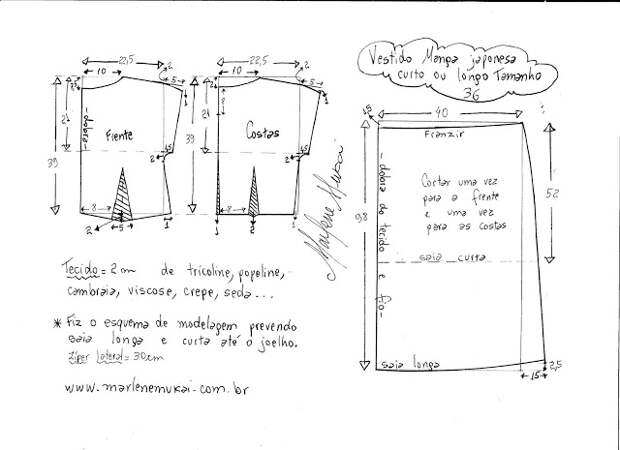 Vestido Manga japonesa
curto ou longo Tamanho
36
22,5
2
10
5
1
21
39
- dobra -
Frente
2
1,5
8
2
5
1
22,5
2
10
2
5
1
8
21
39
Costas
2
1,5
8
1
2
1
Marlene Mukai
1,5
40
Franzir
98
- dobra do tecido e fio -
Cortar uma vez
para a frente
e uma vez
para as costas
52
saia curta
saia longa
2,5
15
Tecido = 2 m de tricoline, popeline,
cambraia, viscose, crepe, seda...
* Fiz o esquema de modelagem prevendo
saia longa e curta até o joelho.
Zíper lateral = 30cm
www.marlenemukai.com.br